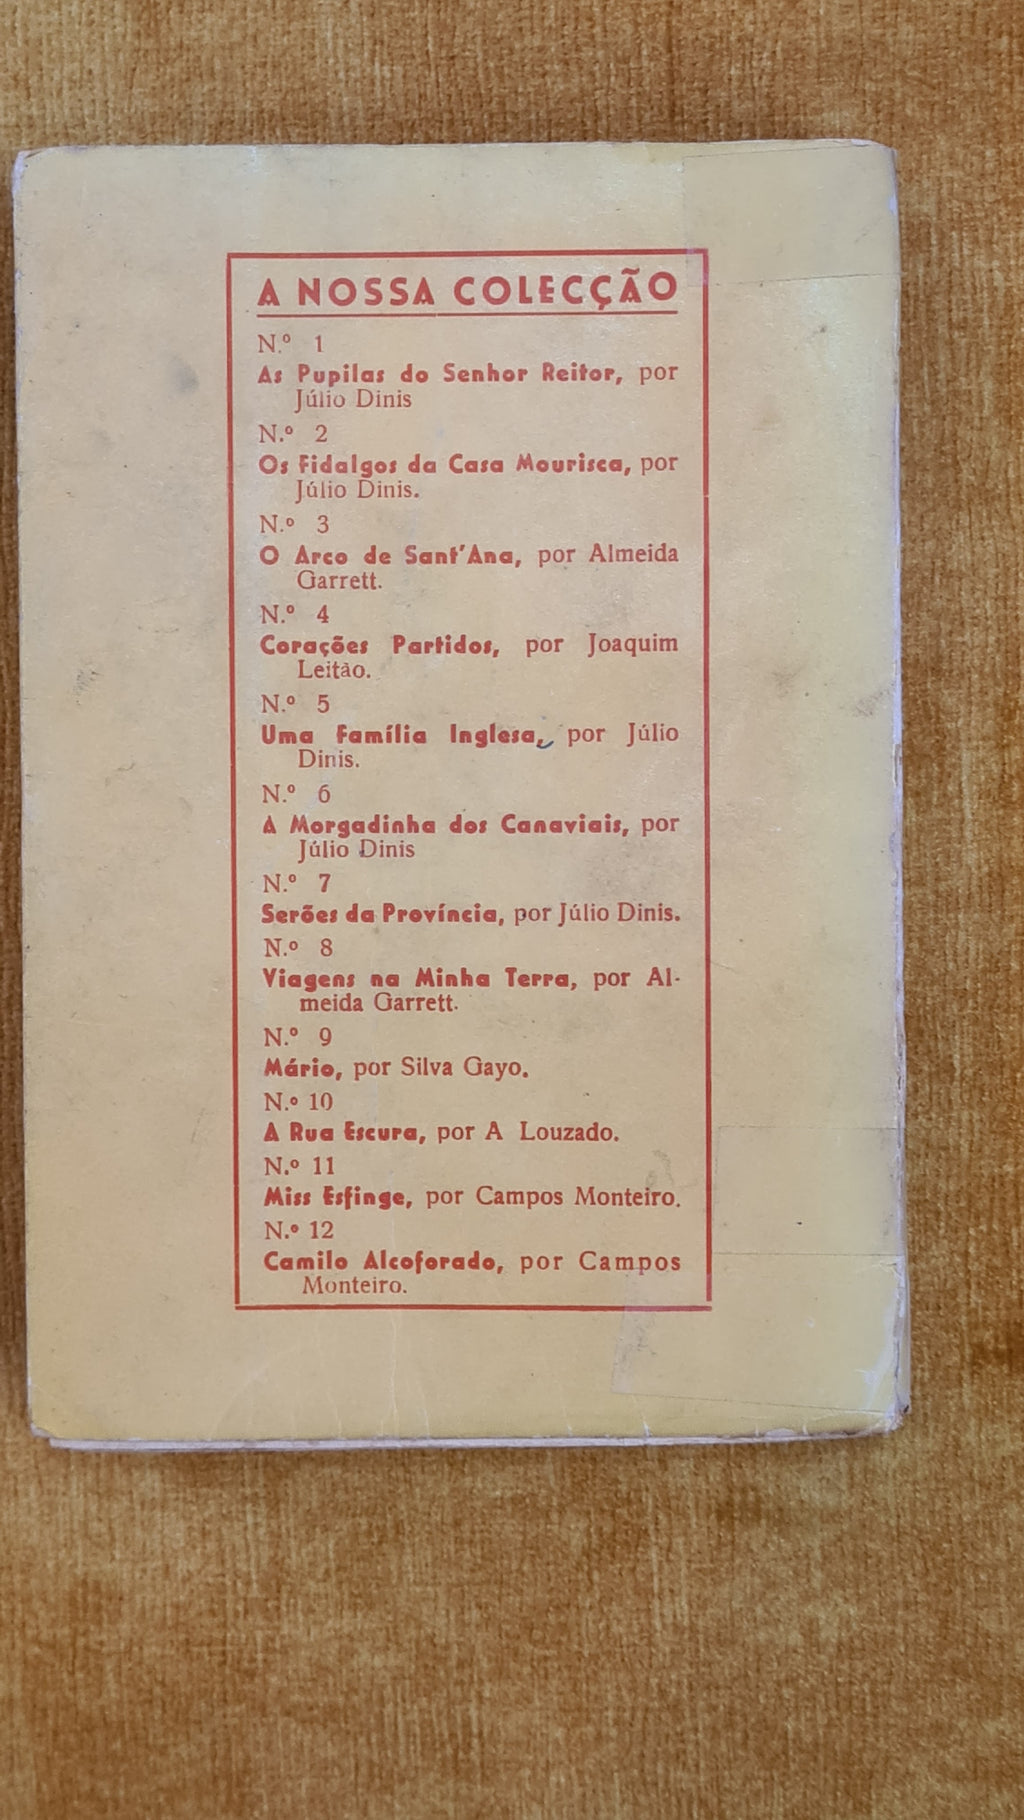 A NOSSA COLECÇÃO
N.º 1
As Pupilas do Senhor Reitor, por
Júlio Dinis
N.º 2
Os Fidalgos da Casa Mourisca, por
Júlio Dinis.
N.º 3
O Arco de Sant'Ana, por Almeida
Garrett.
N.º 4
Corações Partidos, por Joaquim
Leitão.
N.º 5
Uma Família Inglesa, por Júlio
Dinis.
N.º 6
A Morgadinha dos Canaviais, por
Júlio Dinis
N.º 7
Serões da Província, por Júlio Dinis.
N.º 8
Viagens na Minha Terra, por Al-
meida Garrett.
N.º 9
Mário, por Silva Gayo.
N.º 10
A Rua Escura, por A Louzado.
N.º 11
Miss Esfinge, por Campos Monteiro.
N.º 12
Camilo Alcoforado, por Campos
Monteiro.